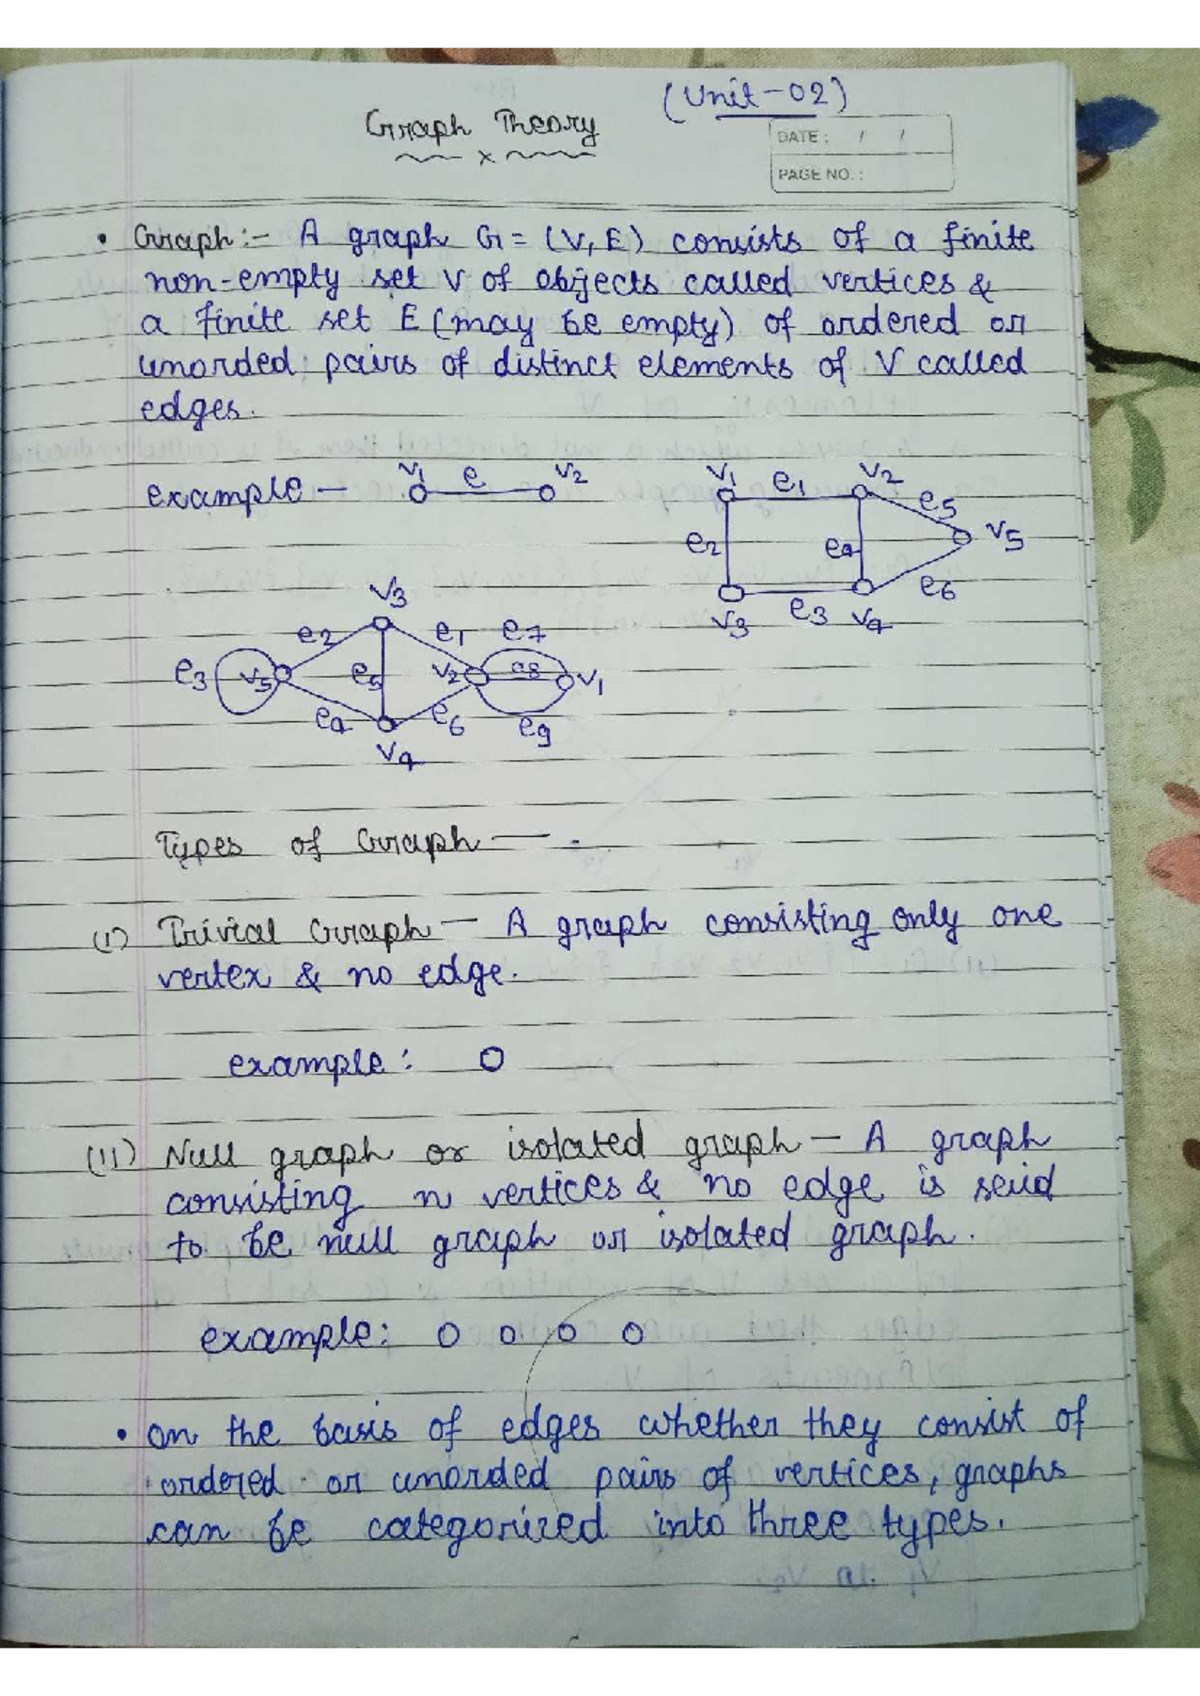 (Unit-02)
Graph Theory
DATE : / /
PAGE NO. :
• Graph:- A graph G = (V, E) consists of a finite
non-empty set V of objects called vertices &
a finite set E (may be empty) of ordered or
unorded pairs of distinct elements of V called
edges.
example — v1 e v2
v1 e1 v2
e5
e2 e4 v5
e6
v3 e3 v4
v3
e2 e1 e7
e3 v5 e5 v2 e8 v1
e4 e6 e9
v4
Types of Graph —
(I) Trivial Graph — A graph consisting only one
vertex & no edge.
example : O
(II) Null graph or isolated graph — A graph
consisting n vertices & no edge is said
to be null graph or isolated graph.
example: O O O O
• on the basis of edges whether they consist of
ordered or unorded pairs of vertices, graphs
can be categorized into three types.